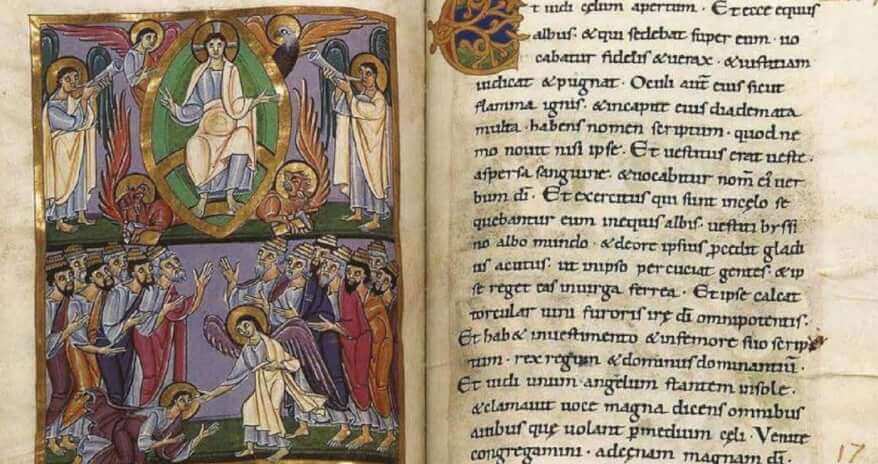 t uidi celum apertum · Et ecce equus
albus · & qui sedebat super eum · uo
cabatur fidelis & uerax · & iustitiam
iudicat & pugnat · Oculi aut ei sicut
flamma ignis · & in capite eius diademata
multa · habens nomen scriptum · quod ne
mo nouit nisi ipse · Et uestitus erat ueste
aspersa sanguine · & uocabitur nom ei uer
bum di · Et exercitus qui sunt in celo se
quebantur eum in equis albis · uestiti byssi
no albo mundo · & de ore ipsius pcedit gladi
us acutus · ut in ipso percuciat gentes · & ip
se reget eas in uirga ferrea · Et ipse calcat
torcular uini furoris ire di omnipotentis ·
Et hab& in uestimento & in femore suo scrip
tum · rex regum & dominus dominantium ·
Et uidi unum angelum stantem in sole ·
& clamauit uoce magna dicens omnibus
auibus que uolant p medium celi · Venite
congregamini · ad cenam magnam di ·
17